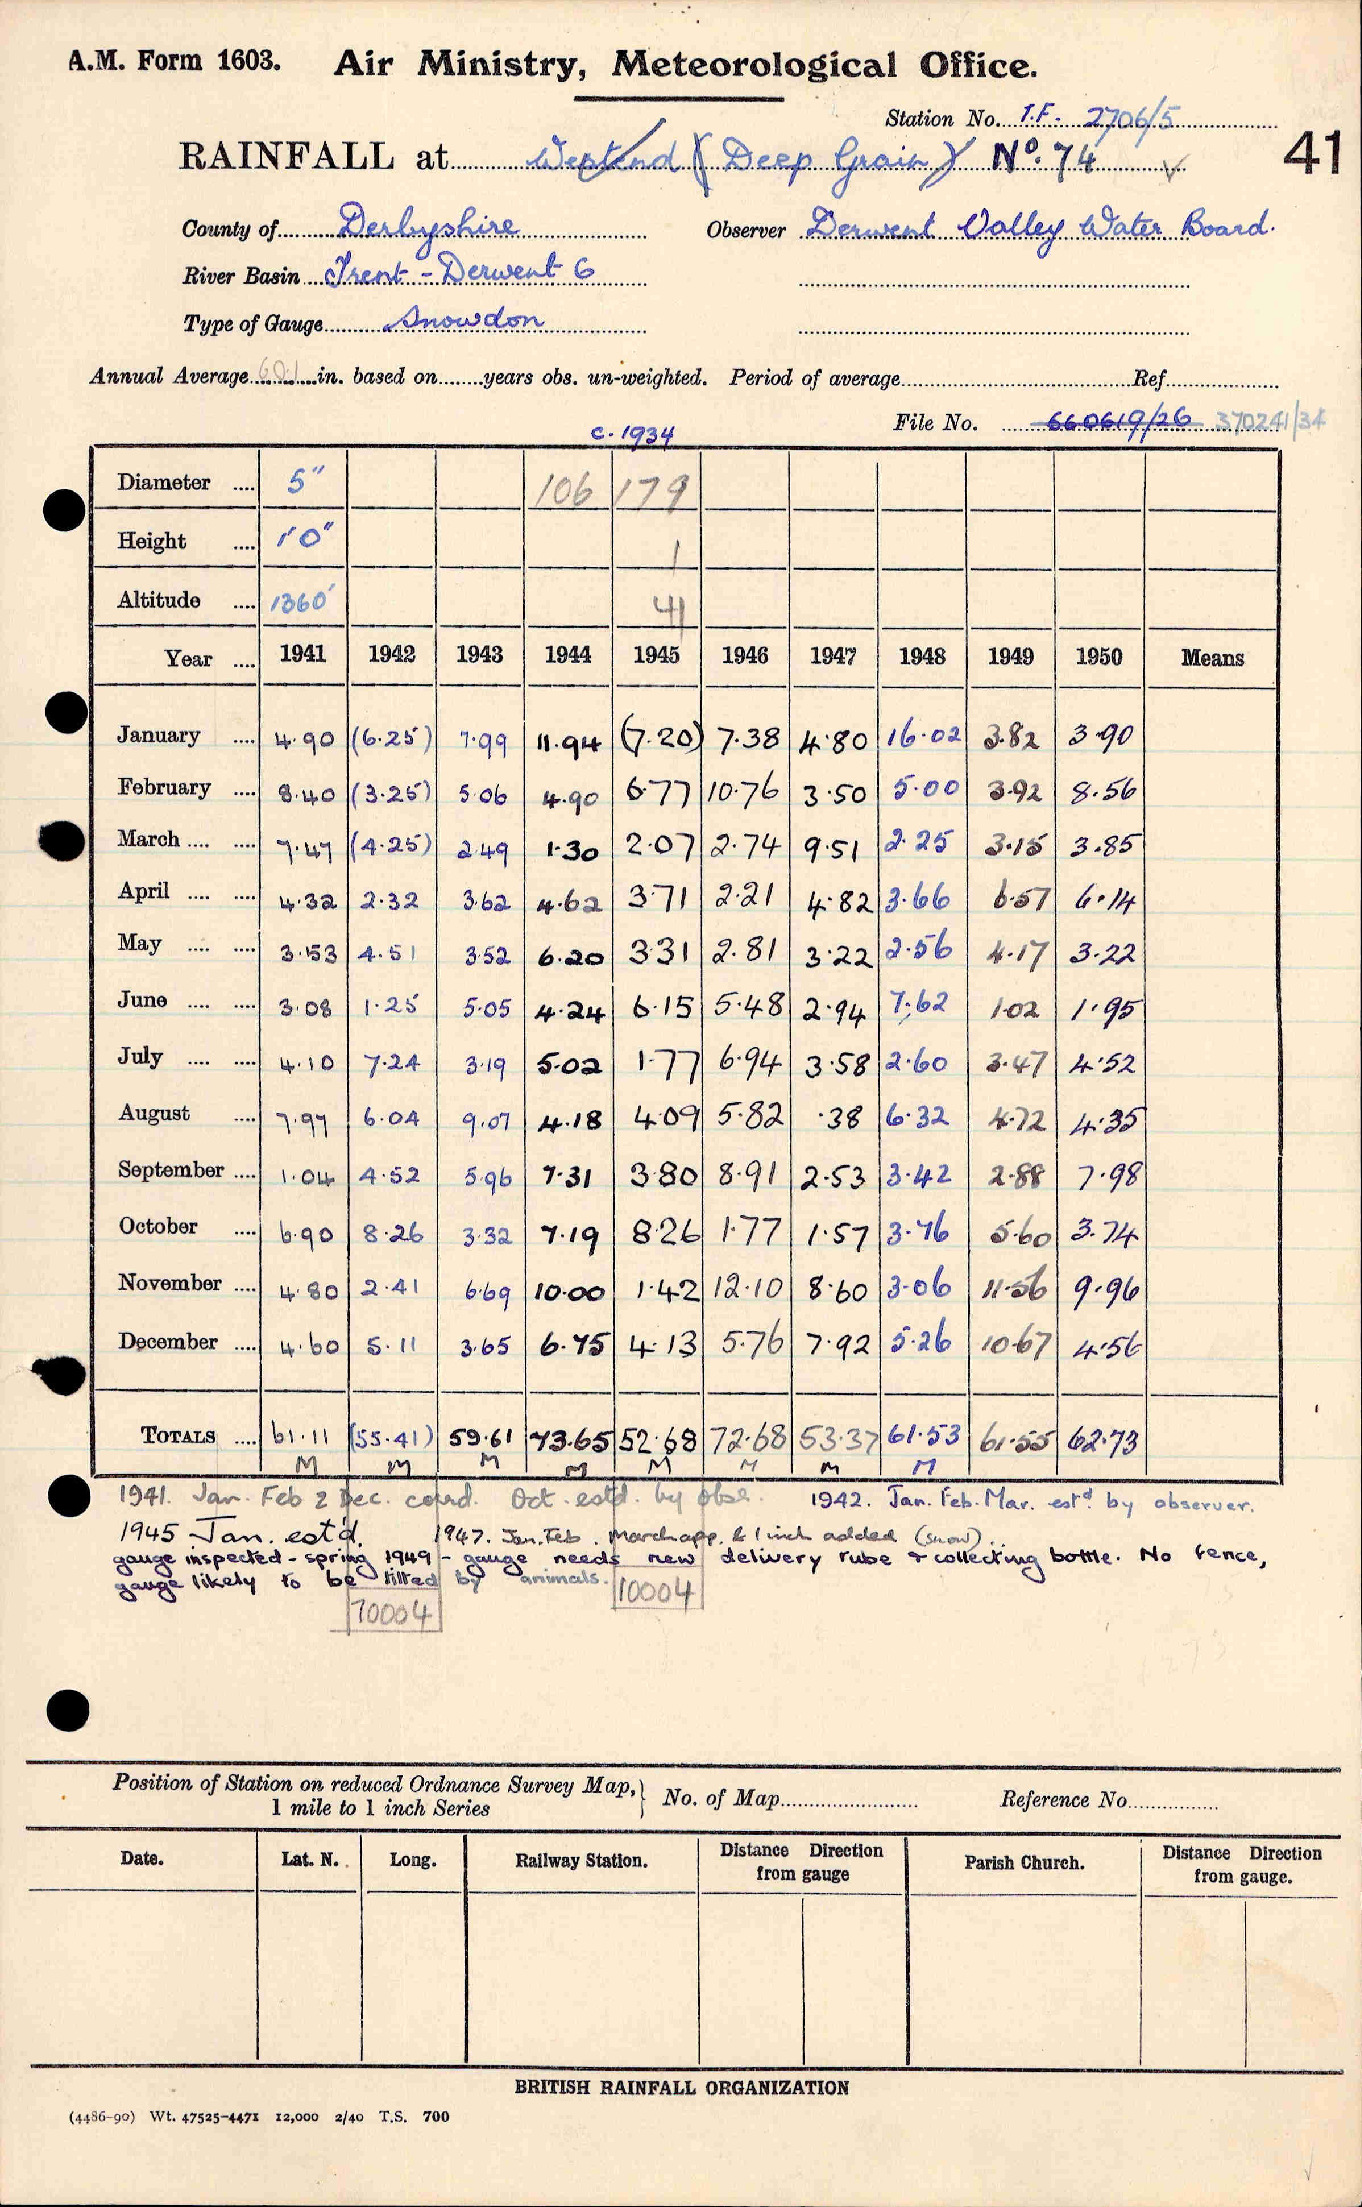 A.M. Form 1603. Air Ministry, Meteorological Office.
Station No. T.F. 2706/5
RAINFALL at Westend (Deep Grain) No. 74 41
County of Derbyshire Observer Derwent Valley Water Board.
River Basin Trent - Derwent 6
Type of Gauge Snowdon
Annual Average 60.1 in. based on years obs. un-weighted. Period of average Ref
File No. 660619/26 370241/34
c. 1934
Diameter 5" 106 179
Height 1'0" 1
Altitude 1360' 41
Year 1941 1942 1943 1944 1945 1946 1947 1948 1949 1950 Means
January 4.90 (6.25) 7.99 11.94 (7.20) 7.38 4.80 16.02 3.82 3.90
February 8.40 (3.25) 5.06 4.90 6.77 10.76 3.50 5.00 3.92 8.56
March 7.47 (4.25) 2.49 1.30 2.07 2.74 9.51 2.25 3.15 3.85
April 4.32 2.32 3.62 4.62 3.71 2.21 4.82 3.66 6.57 6.14
May 3.53 4.51 3.52 6.20 3.31 2.81 3.22 2.56 4.17 3.22
June 3.08 1.25 5.05 4.24 6.15 5.48 2.94 7.62 1.02 1.95
July 4.10 7.24 3.19 5.02 1.77 6.94 3.58 2.60 3.47 4.52
August 7.97 6.04 9.07 4.18 4.09 5.82 .38 6.32 4.72 4.35
September 1.04 4.52 5.96 7.31 3.80 8.91 2.53 3.42 2.88 7.98
October 6.90 8.26 3.32 7.19 8.26 1.77 1.57 3.76 5.60 3.74
November 4.80 2.41 6.69 10.00 1.42 12.10 8.60 3.06 11.56 9.96
December 4.60 5.11 3.65 6.75 4.13 5.76 7.92 5.26 10.67 4.56
TOTALS 61.11 (55.41) 59.61 73.65 52.68 72.68 53.37 61.53 61.55 62.73
M M M M M M M M
1941. Jan. Feb & Dec. coord. Oct. estd. by obsr. 1942. Jan. Feb. Mar. estd by observer.
1945 Jan. est'd. 1947. Jan. Feb. March app. & 1 inch added (snow).
gauge inspected - spring 1949 - gauge needs new delivery tube + collecting bottle. No fence,
gauge likely to be tilted by animals.
10004
70004
Position of Station on reduced Ordnance Survey Map, No. of Map Reference No.
1 mile to 1 inch Series
Date. Lat. N. Long. Railway Station. Distance from gauge Direction Parish Church. Distance Direction from gauge.
BRITISH RAINFALL ORGANIZATION
(4486-90) Wt. 47525-4471 12,000 2/40 T.S. 700